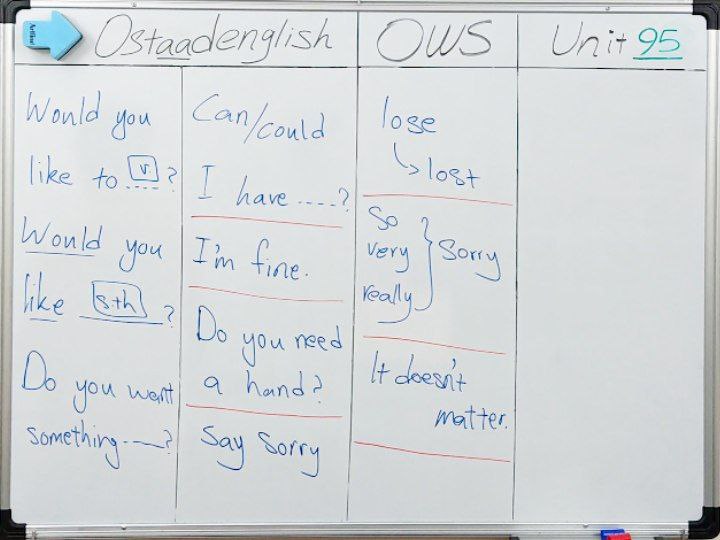 Ostaadenglish
OWS
Unit 95
Would you
like to v. ?
Would you
like s.th ?
Do you want
something ---- ?
Can/could
I have ---- ?
I'm fine.
Do you need
a hand?
Say sorry
lose
↳ lost
So
very
really
} Sorry
It doesn't
matter.